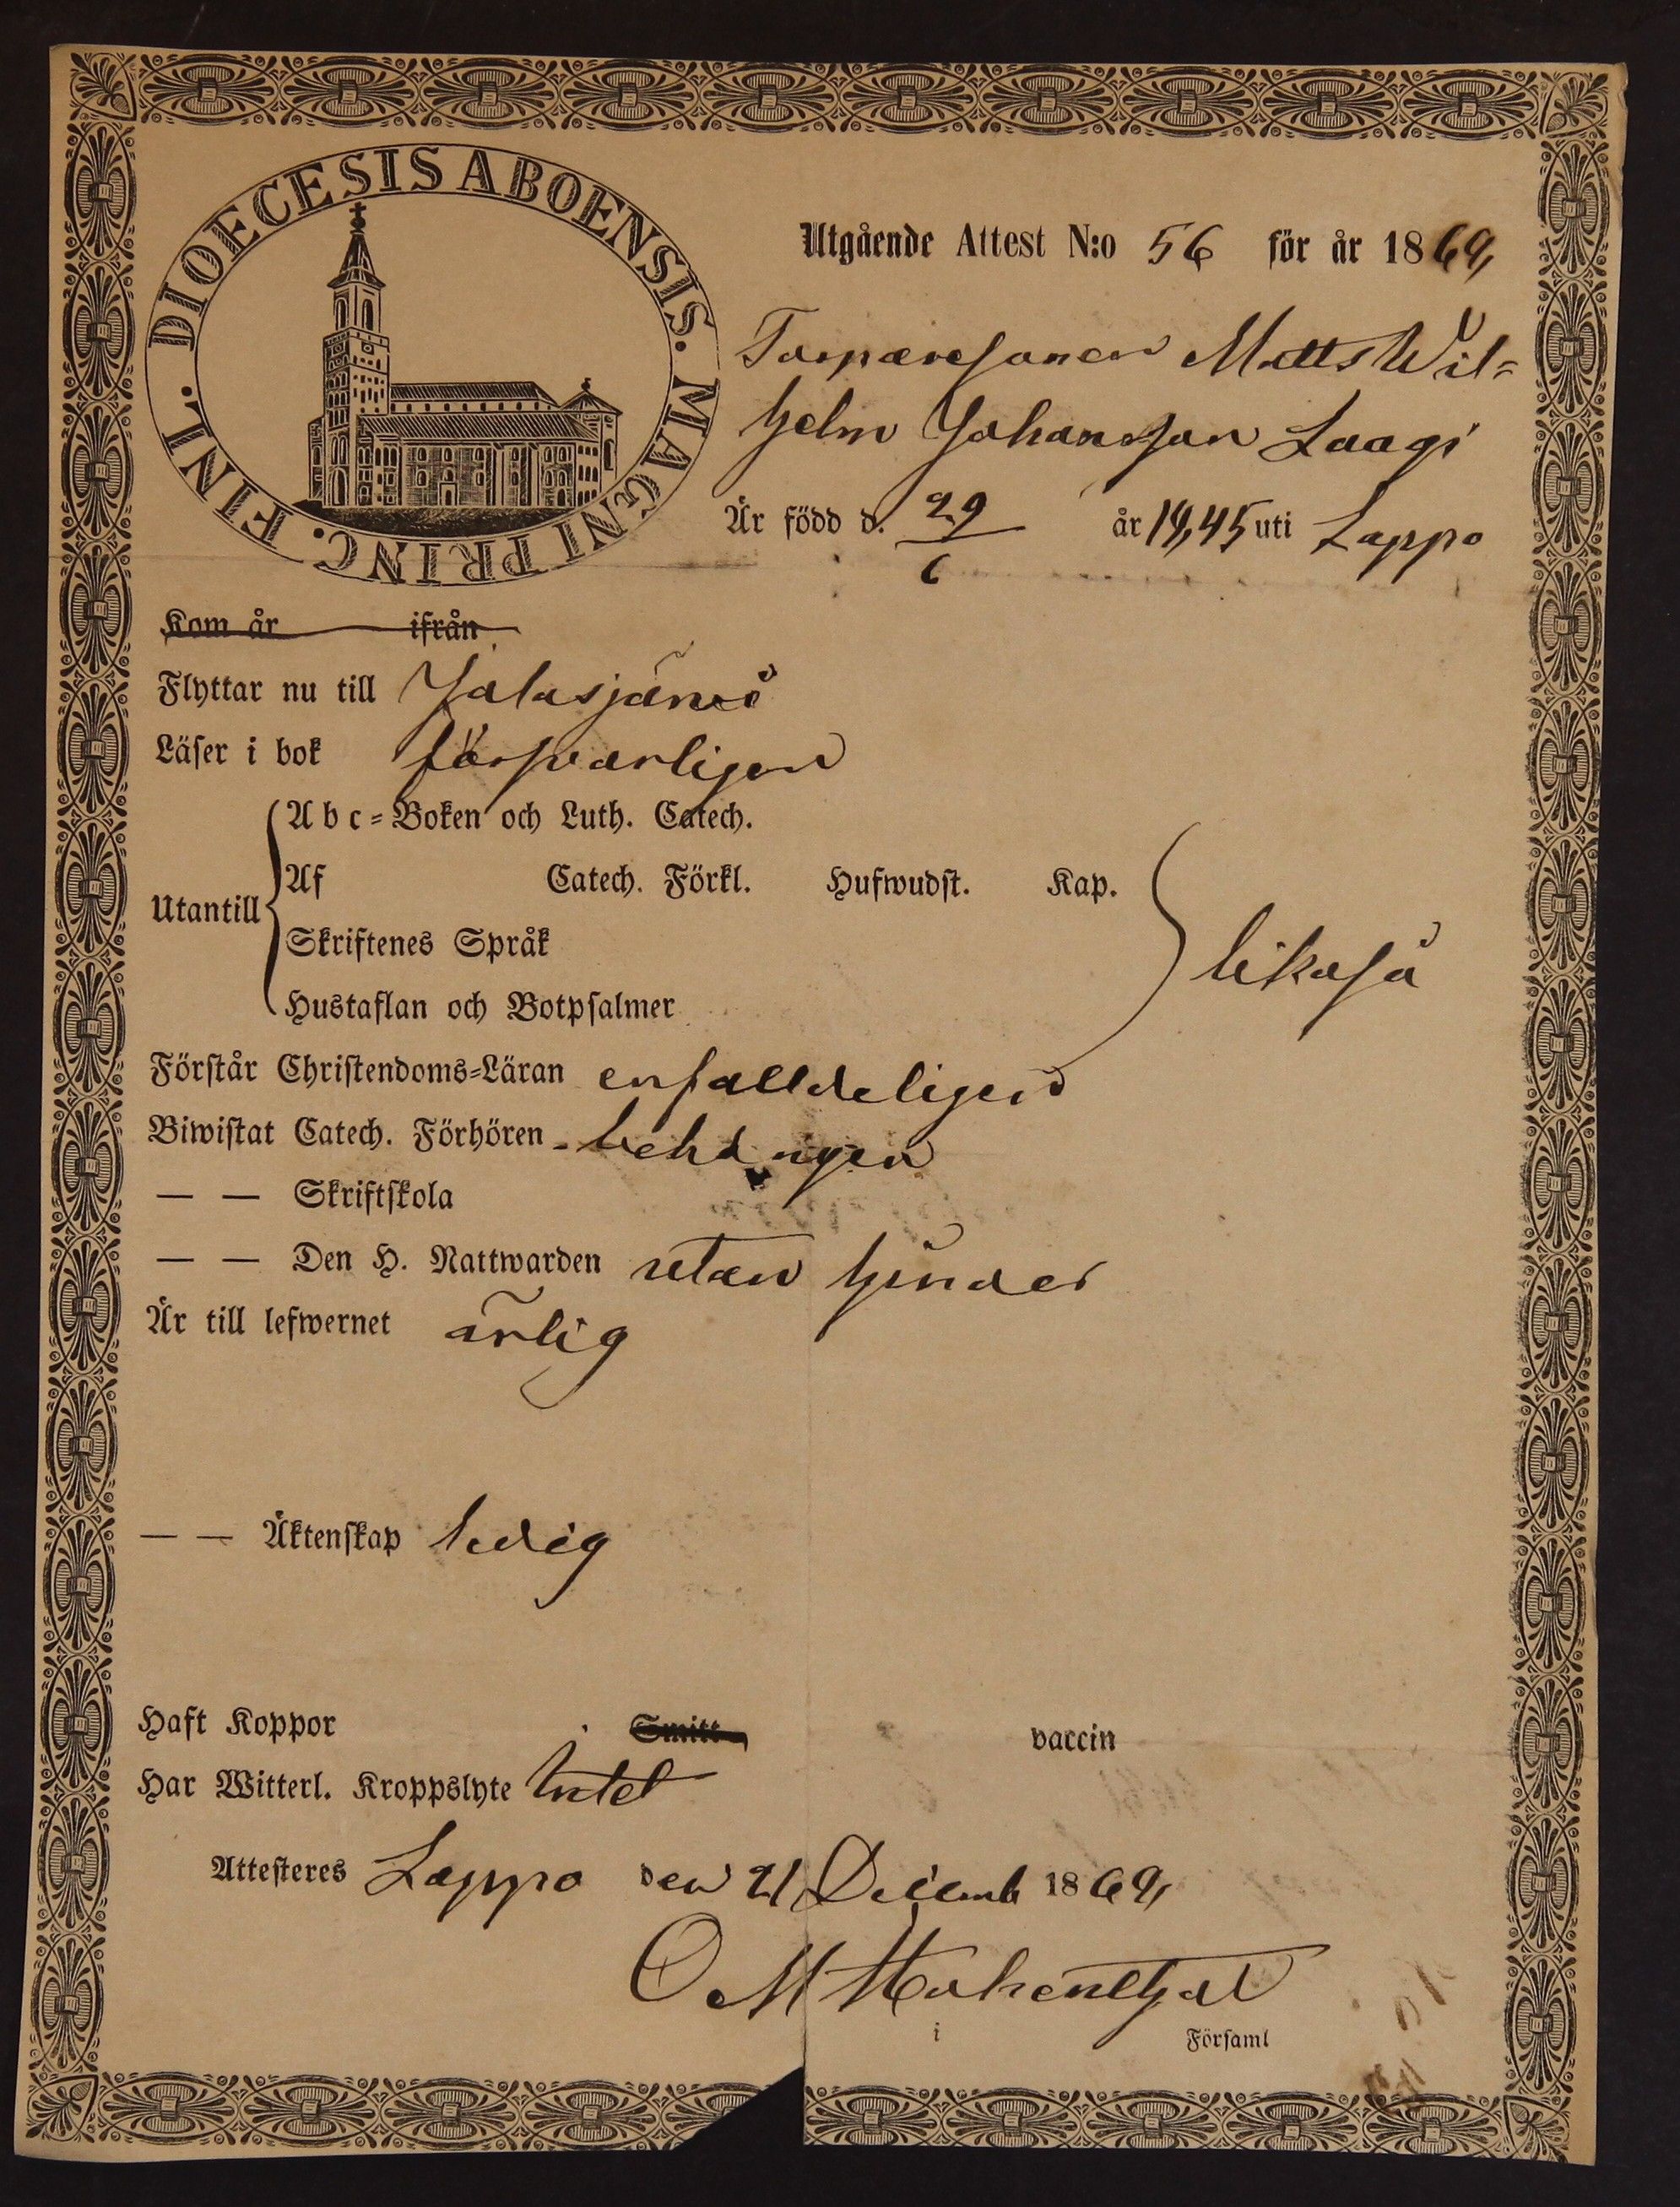 DIOECESIS ABOENSIS. MAGNI PRINC. FINL.
Utgående Attest N:o 56 för år 1869,
Torparesonen Matts Wil=
helm Johansson Laagi
Är född d. 29/6 år 18,45 uti Lappo
Kom år ifrån
Flyttar nu till Jalasjärvi
Läser i bok försvarligen
Abc=Boken och Luth. Catech.
Utantill
Af Catech. Förkl. Hufwudst. Kap.
Skriftenes Språk
likaså
Hustaflan och Botpsalmer
Förstår Christendoms=Läran enfalldeligen
Biwistat Catech. Förhören behörigen
— — Skriftskola
— — Den H. Nattwarden utan hinder
Är till lefwernet ärlig
— — Äktenskap ledig
Haft Koppor Smitt vaccin
Har Witterl. Kroppslyte Intet
Attesteres Lappo den 21 Decemb 1869,
i Församl